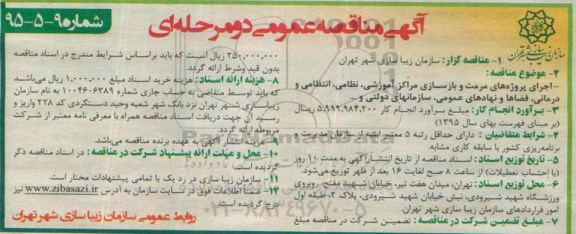 آگهی مناقصه عمومی دو مرحله‌ای
شماره ۹-۵-۹۵
سازمان زیباسازی شهر تهران
۱- مناقصه گزار: سازمان زیبا سازی شهر تهران
۲- موضوع مناقصه:
- اجرای پروژه‌های مرمت و بازسازی مراکز آموزشی، نظامی، انتظامی و
درمانی، فضاها و نهادهای عمومی، سازمانهای دولتی و
۳- برآورد انجام کار: مبلغ برآورد انجام کار ۵,۹۹۱,۹۸۴,۲۰۰ ریال
(بر مبنای فهرست بهای سال ۱۳۹۵)
۴- شرایط متقاضیان: دارای حداقل رتبه ۵ معتبر ابنیه از سازمان مدیریت و
برنامه‌ریزی کشور با سابقه کاری مشابه.
۵- تاریخ توزیع اسناد: اسناد مناقصه از تاریخ انتشار آگهی به مدت ۱۰ روز
(با احتساب تعطیلات) از ساعت ۸ صبح لغایت ۱۶ بعد از ظهر توزیع می‌شود.
۶- محل توزیع اسناد: تهران، میدان هفت تیر، خیابان شهید مفتح، روبروی
ورزشگاه شهید شیرودی، نبش خیابان شهید شیرودی، پلاک ۲، طبقه اول
امور قراردادهای سازمان زیبا سازی شهر تهران
۷- مبلغ تضمین شرکت در مناقصه: تضمین شرکت در مناقصه مبلغ
۲۵۰,۰۰۰,۰۰۰ ریال است که باید براساس شرایط مندرج در اسناد مناقصه
بدون قید وشرط ارائه گردد.
۸- هزینه ارائه اسناد: هزینه خرید اسناد مبلغ ۱,۰۰۰,۰۰۰ ریال می‌باشد
که باید توسط متقاضی به حساب جاری شماره ۱۰۰۴۶۰۶۳۸۹ به نام سازمان
زیباسازی شهر تهران نزد بانک شهر شعبه وحید دستگردی کد ۲۲۸ واریز و
رسید آن جهت دریافت اسناد مناقصه همراه با معرفی نامه معتبر از شرکت
مربوطه ارائه گردد.
۹- هزینه انتشار آگهی به عهده برنده مناقصه می‌باشد.
۱۰- محل و مهلت ارائه پیشنهاد شرکت در مناقصه: در اسناد مناقصه ذکر
گردیده است.
۱۱- سازمان زیبا سازی در رد یک یا تمامی پیشنهادات مختار است.
۱۲- ضمناً اطلاعات فوق در سایت سازمان به آدرس www.zibasazi.ir نیز
درج گردیده است.
روابط عمومی سازمان زیبا سازی شهر تهران
ParsNamadData
۰۲۱-۸۸۳۴۹۶۷۰-۵